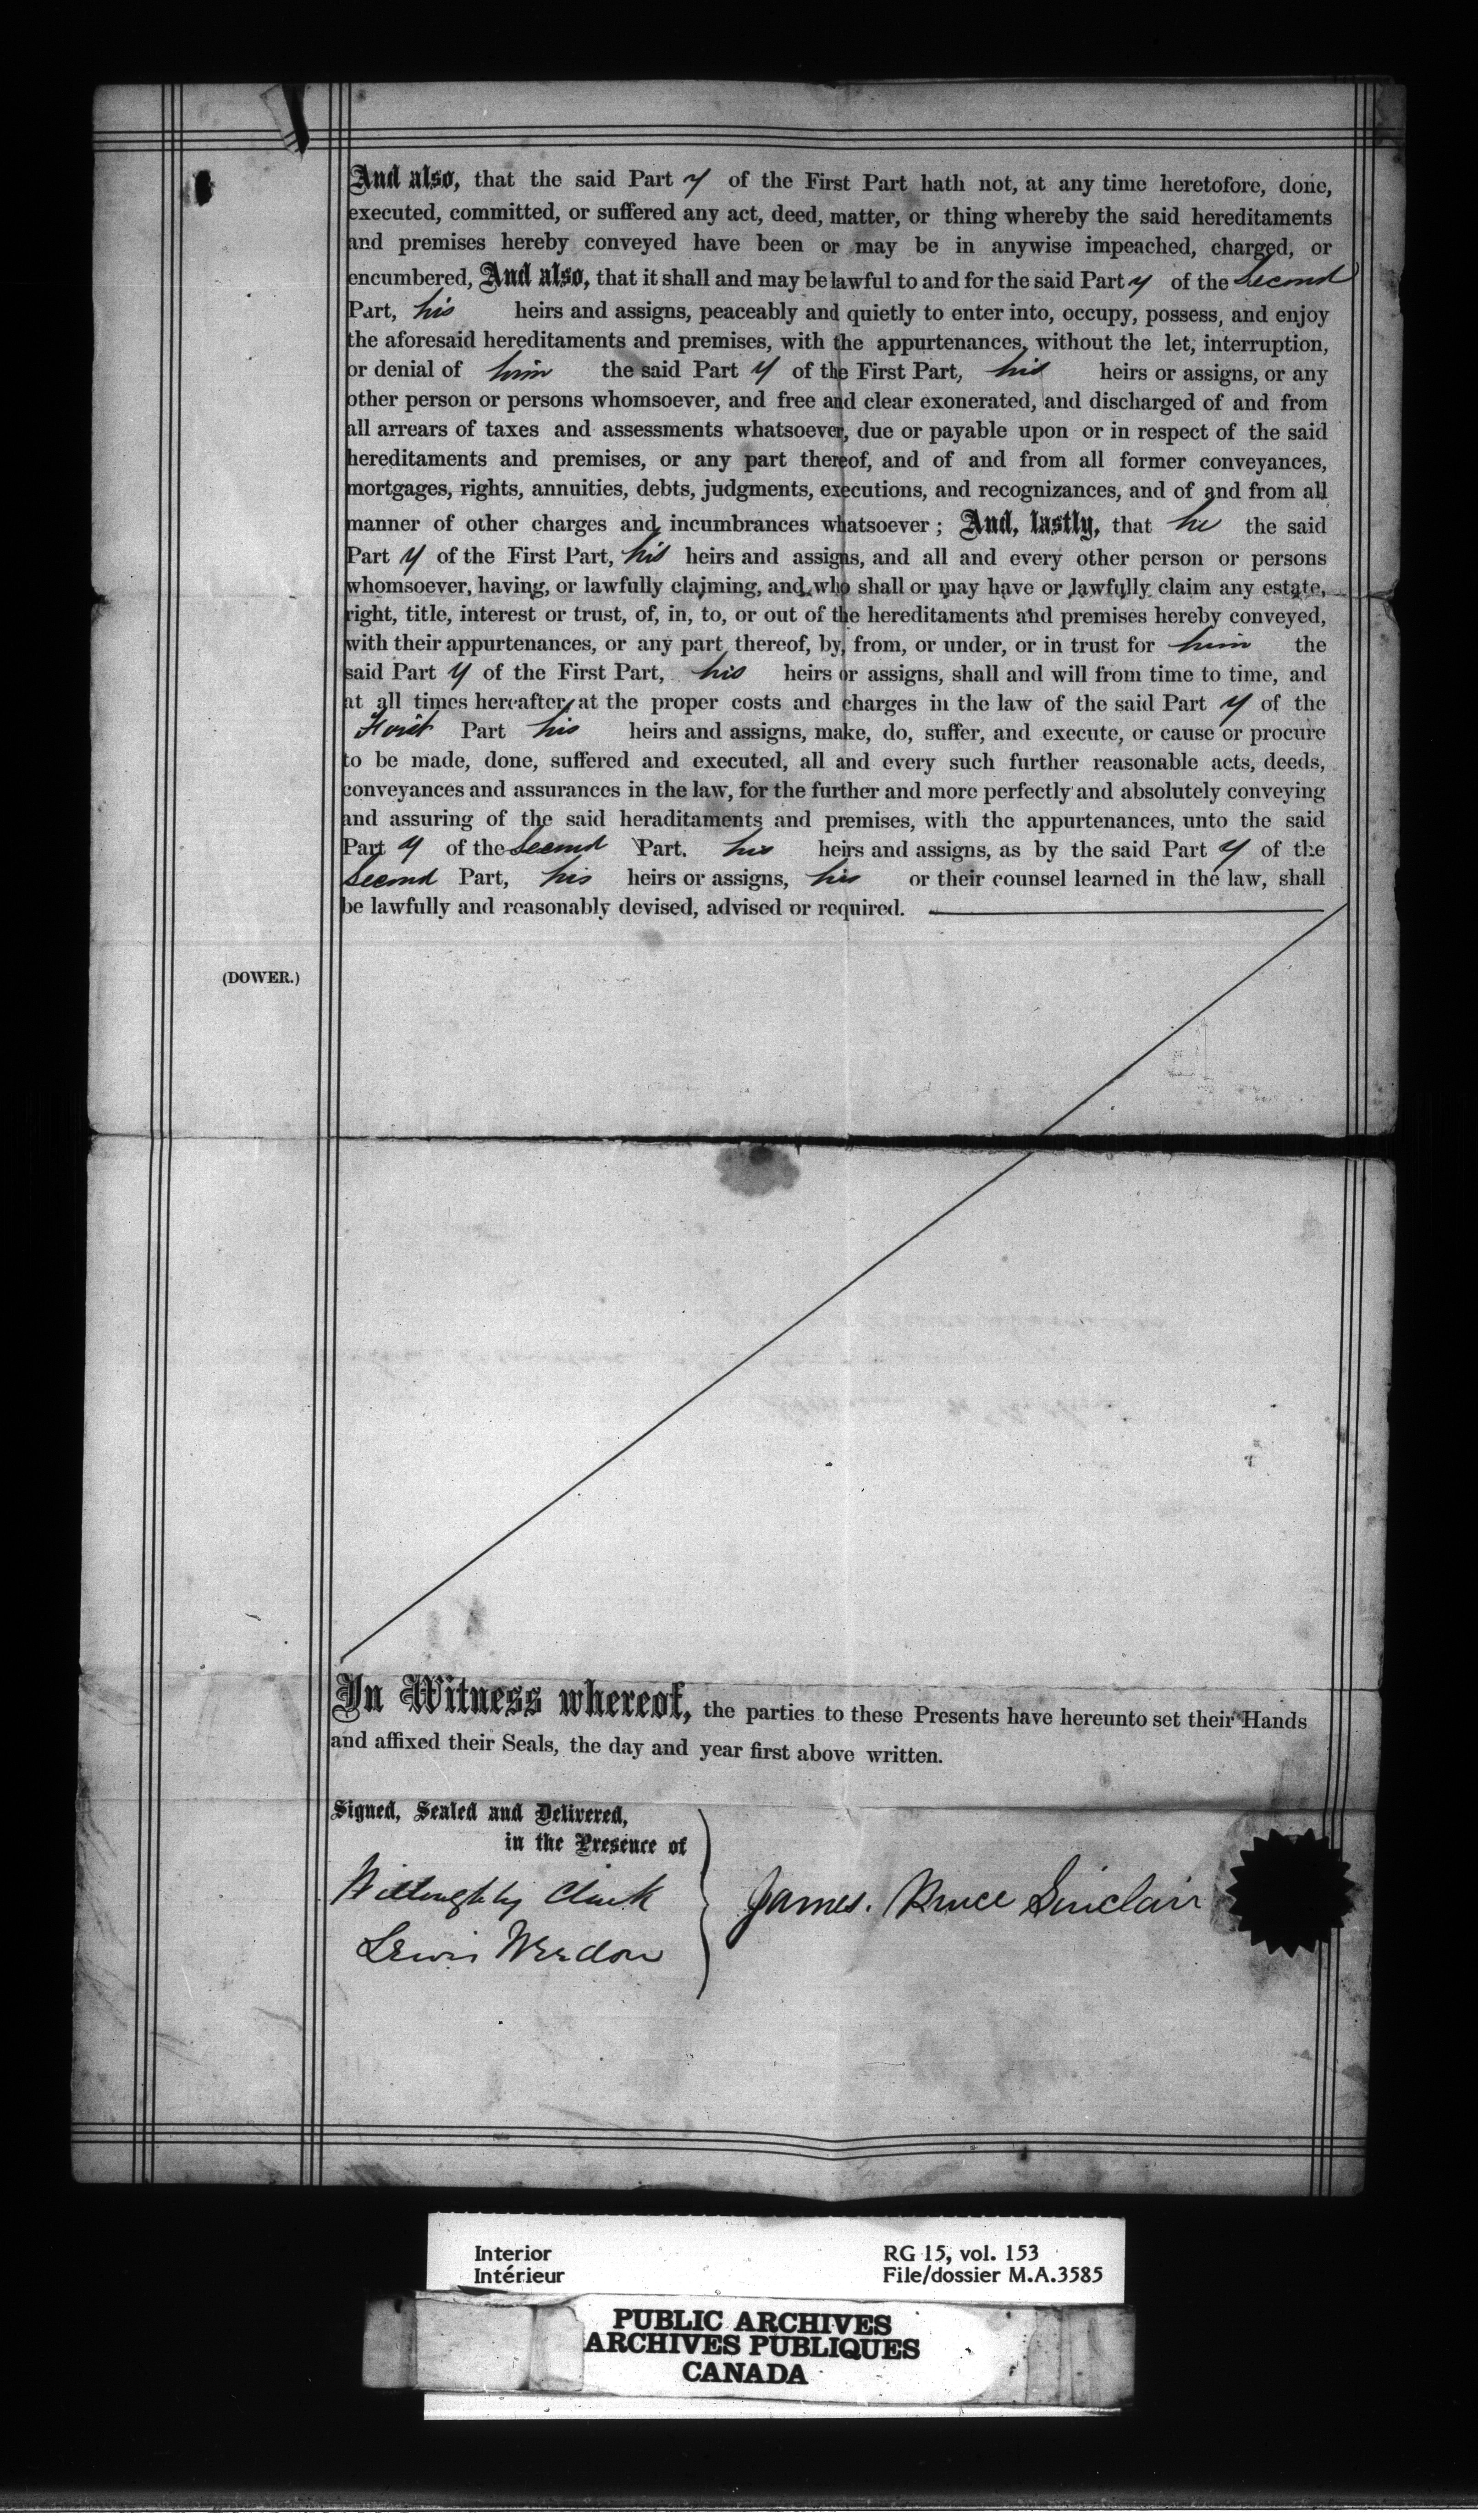 And also, that the said Part y of the First Part hath not, at any time heretofore, done,
executed, committed, or suffered any act, deed, matter, or thing whereby the said hereditaments
and premises hereby conveyed have been or may be in anywise impeached, charged, or
encumbered, And also, that it shall and may be lawful to and for the said Part y of the Second
Part, his heirs and assigns, peaceably and quietly to enter into, occupy, possess, and enjoy
the aforesaid hereditaments and premises, with the appurtenances, without the let, interruption,
or denial of him the said Part y of the First Part, his heirs or assigns, or any
other person or persons whomsoever, and free and clear exonerated, and discharged of and from
all arrears of taxes and assessments whatsoever, due or payable upon or in respect of the said
hereditaments and premises, or any part thereof, and of and from all former conveyances,
mortgages, rights, annuities, debts, judgments, executions, and recognizances, and of and from all
manner of other charges and incumbrances whatsoever ; And, lastly, that he the said
Part y of the First Part, his heirs and assigns, and all and every other person or persons
whomsoever, having, or lawfully claiming, and who shall or may have or lawfully claim any estate,
right, title, interest or trust, of, in, to, or out of the hereditaments and premises hereby conveyed,
with their appurtenances, or any part thereof, by, from, or under, or in trust for him the
said Part y of the First Part, his heirs or assigns, shall and will from time to time, and
at all times hereafter, at the proper costs and charges in the law of the said Part y of the
First Part his heirs and assigns, make, do, suffer, and execute, or cause or procure
to be made, done, suffered and executed, all and every such further reasonable acts, deeds,
conveyances and assurances in the law, for the further and more perfectly and absolutely conveying
and assuring of the said heraditaments and premises, with the appurtenances, unto the said
Part y of the Second Part. his heirs and assigns, as by the said Part y of the
Second Part, his heirs or assigns, his or their counsel learned in the law, shall
be lawfully and reasonably devised, advised or required.
(DOWER.)
In Witness whereof, the parties to these Presents have hereunto set their Hands
and affixed their Seals, the day and year first above written.
Signed, Sealed and Delivered,
in the Presence of
Willoughby Clark
Lewis Weedon
James. Bruce Sinclair
Interior
Intérieur
RG 15, vol. 153
File/dossier M.A.3585
PUBLIC ARCHIVES
ARCHIVES PUBLIQUES
CANADA